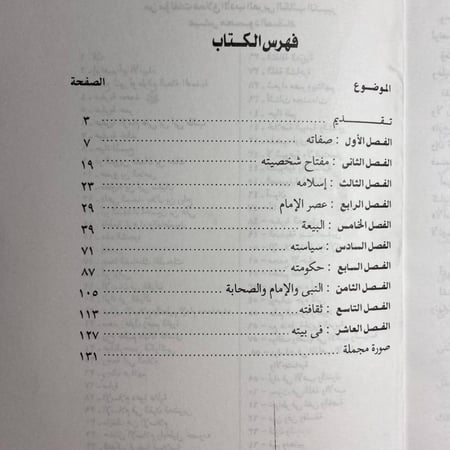 فهرس الكتاب
الموضوع الصفحة
تقديم ٣
الفصل الأول : صفاته ٧
الفصل الثانى : مفتاح شخصيته ١٩
الفصل الثالث : إسلامه ٢٣
الفصل الرابع : عصر الإمام ٢٩
الفصل الخامس : البيعة ٣٩
الفصل السادس : سياسته ٧١
الفصل السابع : حكومته ٨٧
الفصل الثامن : النبى والإمام والصحابة ١٠٥
الفصل التاسع : ثقافته ١١٣
الفصل العاشر : فى بيته ١٢٧
صورة مجملة ١٣١